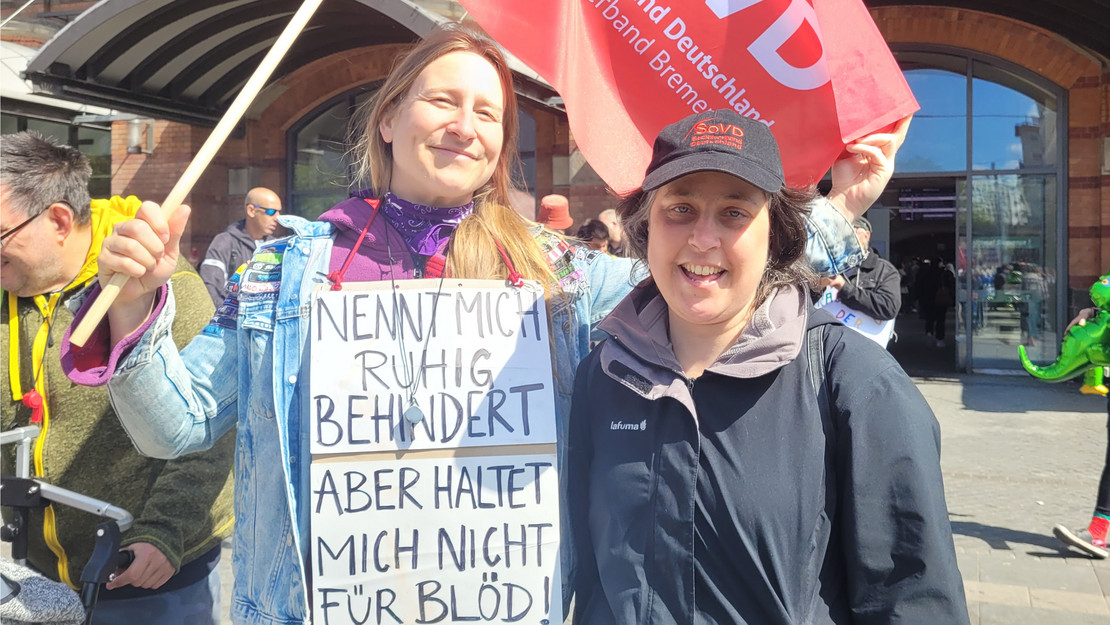 SoVD
nd Deutschland
rband Breme
SoVD
Sozialverband
Deutschland
NENNT MICH
RUHIG
BEHINDERT
ABER HALTET
MICH NICHT
FÜR BLÖD!
lafuma
DER